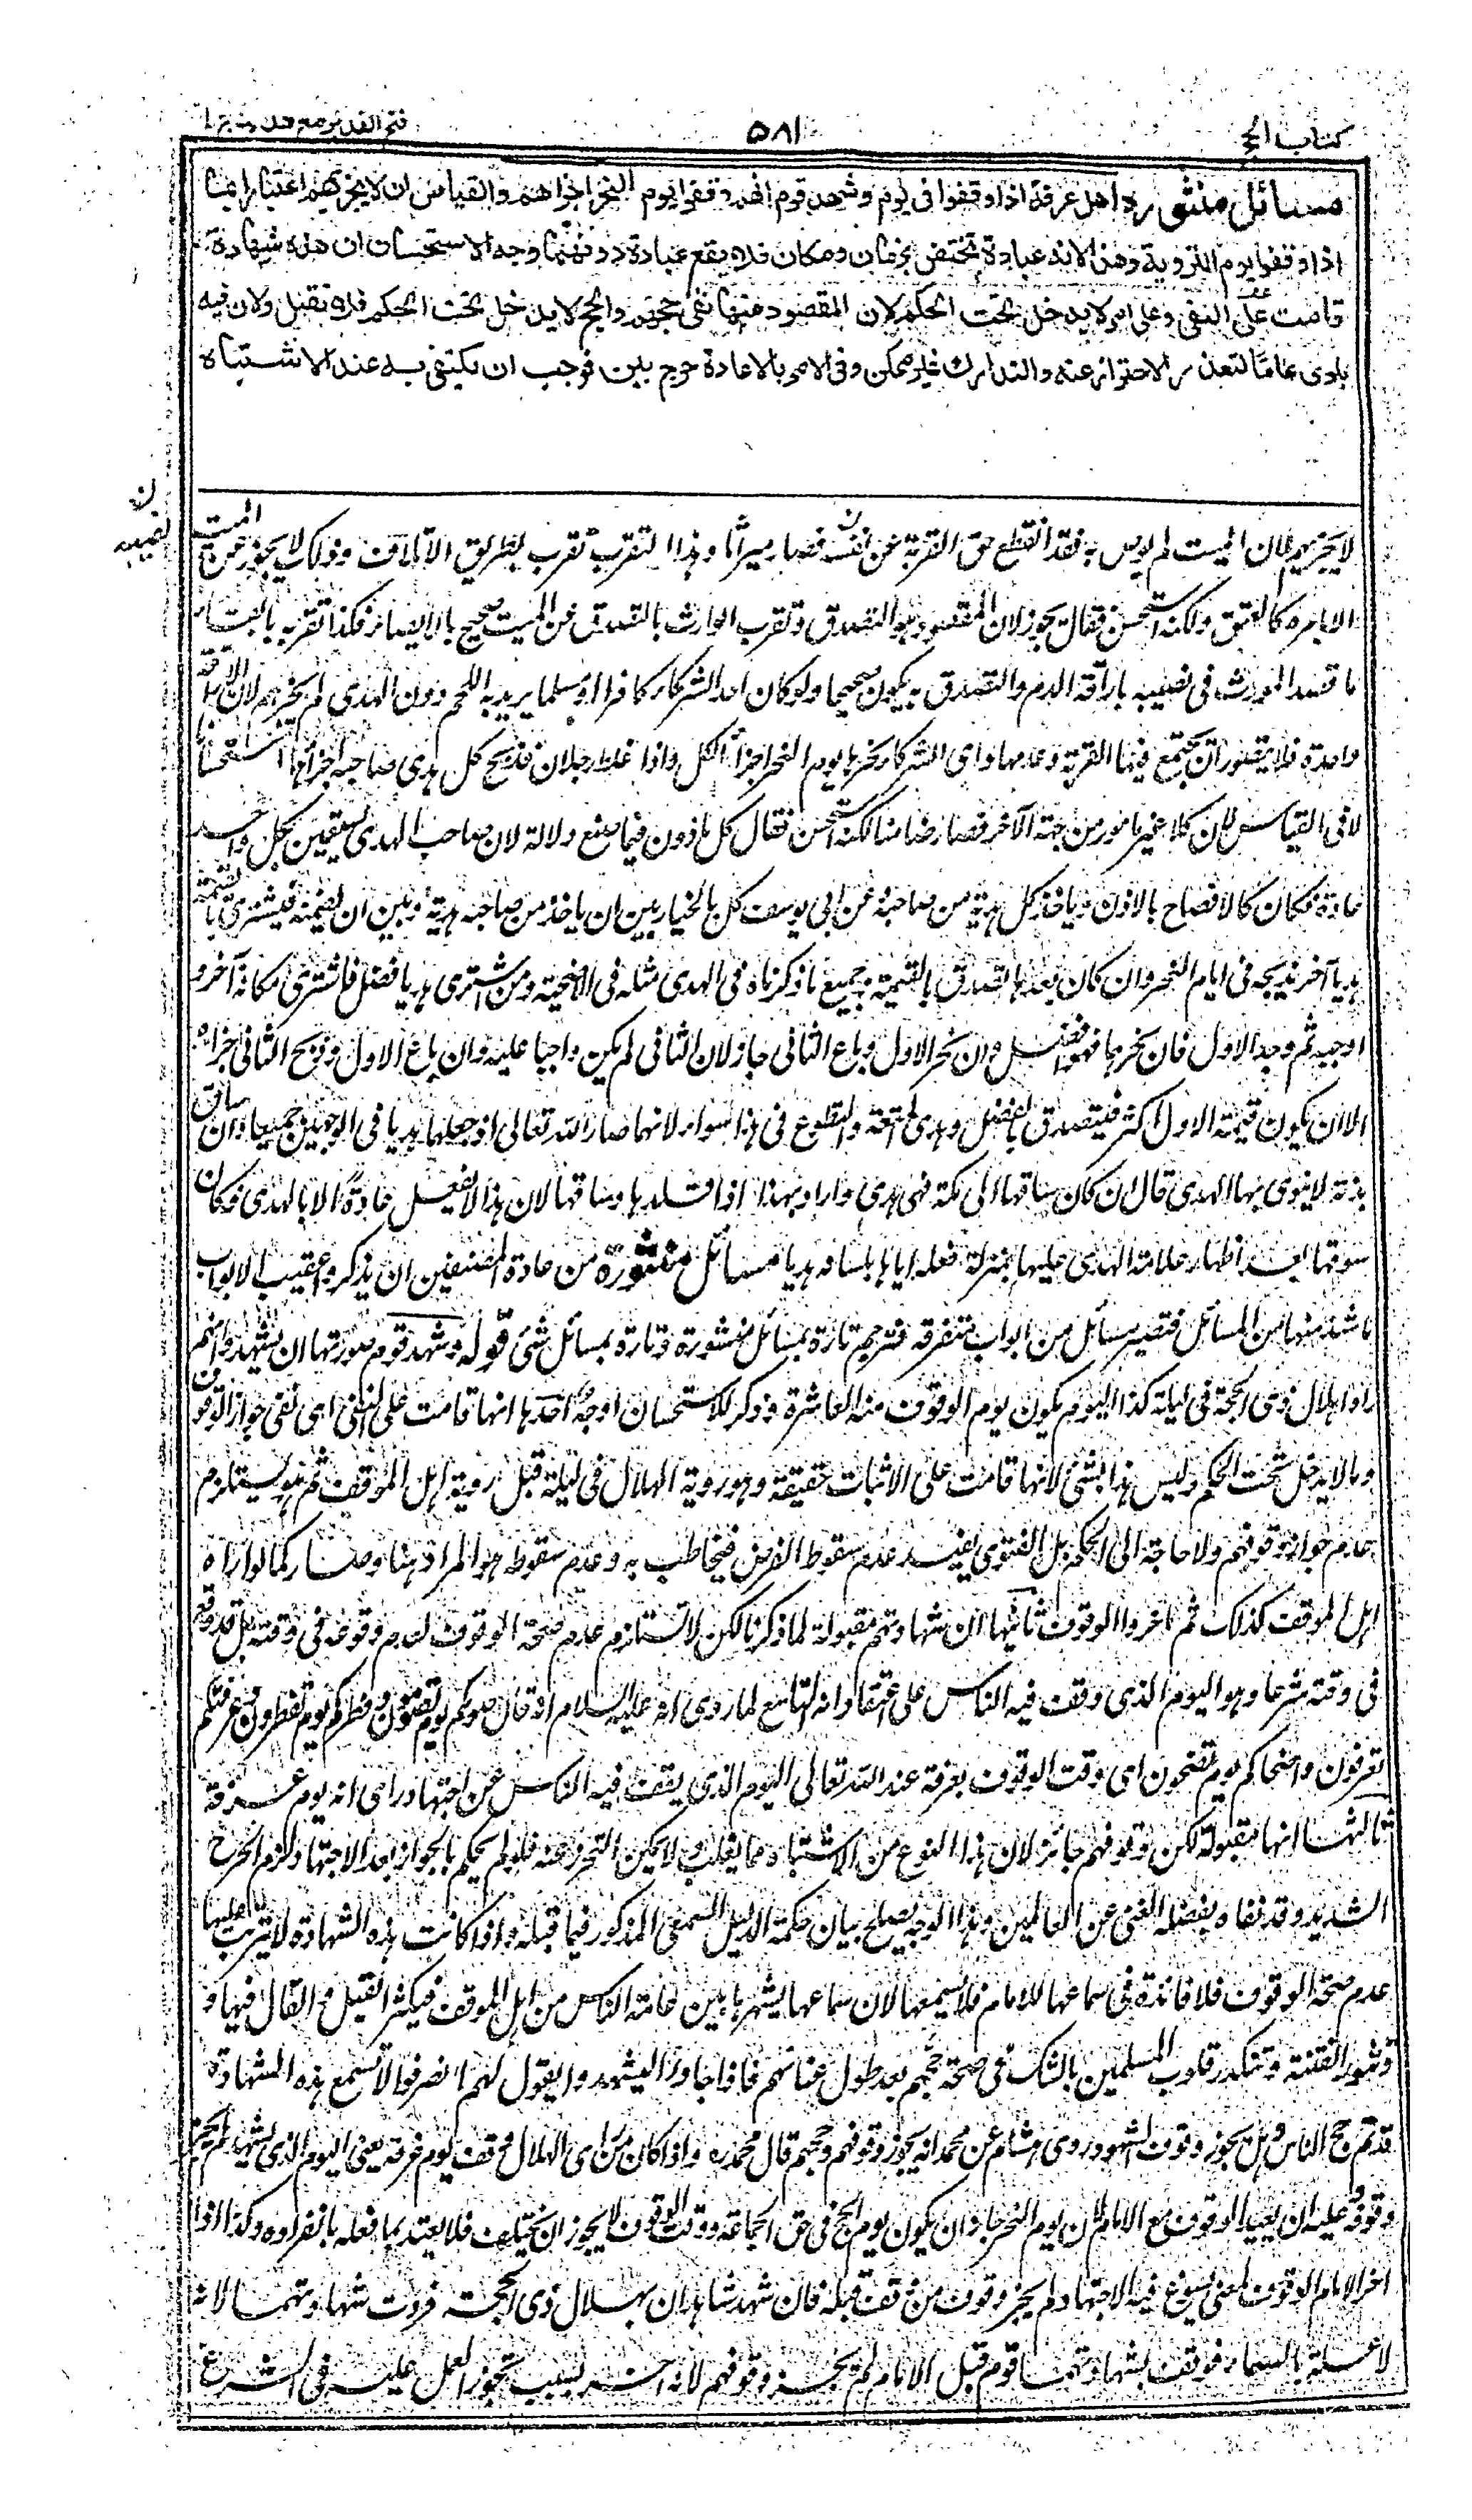 كتاب الحج
٥٨١
فتح القدير مع هدايه جلد ١
مسائل منثورة اهل عرفة اذا وقفوا فى يوم وشهد قوم انهم وقفوا يوم النحر اجزاهم والقياس ان لا يجزيهم اعتبارا بما
اذا وقفوا يوم التروية وهذا لانه عبادة تختص بزمان ومكان فلا يقع عبادة دونهما وجه الاستحسان ان هذه شهادة
قامت على النفى وعلى امر لا يدخل تحت الحكم لان المقصود منها نفى حجهم والحج لا يدخل تحت الحكم فلا تقبل ولان فيه
بلوى عاما لتعذر الاحتراز عنه والتدارك غير ممكن وفى الامر بالاعادة حرج بين فوجب ان يكتفى به عند الاشتباه
لا يجزيهم لان الميت لم يوص به فقد انقطع حق القربة عن نفسه فصار ميراثا وهذا التقرب تقرب بطريق الاتلاف وذلك لا يجوز عن الميت
الا بامره كالعتق ولكنه استحسن فقال يجوز لان المقصود هو التصدق وتقرب الوارث بالتصدق عن الميت صحيح بلا ايصاء فكذا تقربه بابقاء
ما قصد المورث فى نصيبه باراقة الدم والتصدق به يكون صحيحا ولو كان احد الشركاء كافرا او مسلما يريد به اللحم دون الهدى لم يجزهم لان الاراقة
واحدة فلا يتصور ان يجتمع فيها القربة وعدمها واى الشركاء نحرها يوم النحر اجزأ الكل واذا غلط رجلان فذبح كل هدى صاحبه اجزأهما استحسانا
لا فى القياس لان كلا غير مأمور من جهة الآخر فصار ضامنا لكنه استحسن فقال كل ماذون فيما صنع دلالة لان صاحب الهدى يستعين بكل واحد
عادة فكان كالافصاح بالاذن وياخذ كل هديه من صاحبه وعن ابى يوسف كل بالخيار بين ان ياخذ من صاحبه هديه وبين ان يضمنه فيشترى بالقيمة
هديا آخر يذبحه فى ايام النحر وان كان بعدها تصدق بالقيمة وجميع ما ذكرناه فى الهدى مثله فى الاضحية ومن اشترى هديا فضل فاشترى مكانه آخر و
اوجبه ثم وجد الاول فان نحرهما فهو افضل وان نحر الاول وباع الثانى جاز لان الثانى لم يكن واجبا عليه وان باع الاول وذبح الثانى اجزاه
الا ان يكون قيمة الاول اكثر فيتصدق بالفضل وهدى المتعة والتطوع فى هذا سواء لانهما صارا لله تعالى اذ جعلها هديا فى الوجهين جميعا وان ساق
بدنة لا ينوى بها الهدى قال ان كان ساقها الى مكة فهى هدى واراد بهذا اذا قلدها وساقها لان هذا لا يفعل عادة الا بالهدى فكان
سوقها بعد اظهار علامة الهدى عليها بمنزلة جعله اياها بلسانه هديا مسائل منثورة من عادة المصنفين ان يذكروا عقيب الابواب
ما شذ منها من المسائل فتصير مسائل من ابواب متفرقة فترجم تارة بمسائل منثورة وتارة بمسائل شتى قوله وشهد قوم صورتها ان يشهدوا انهم
راوا هلال ذى الحجة فى ليلة كذا اليوم يكون يوم الوقوف منه العاشرة وذكر للاستحسان اوجها احدها انها قامت على النفى اى نفى جواز الوقوف
وما لا يدخل تحت الحكم وليس هذا بشئ لانها قامت على الاثبات حقيقة وهو روية الهلال فى ليلة قبل روية اهل الموقف ثم هو يستلزم
عدم جواز وقوفهم ولا حاجة الى الحكم بل الفتوى يفيد عدم سقوط الفرض فيخاطب به وعدم سقوطه هو المراد هنا وصار كما لو راه
اهل الموقف كذلك ثم اخروا الوقوف ثانيها ان شهادتهم مقبولة لما ذكرنا لكن لا تستلزم عدم صحة الوقوف لعدم وقوعه فى وقته بل قد وقع
فى وقته شرعا وهو اليوم الذى وقف فيه الناس على اعتقاد انه التاسع لما روى انه عليه السلام انه قال صومكم يوم تصومون وفطركم يوم تفطرون وعرفتكم يوم
تعرفون واضحاكم يوم تضحون اى وقت الوقوف بعرفة عند الله تعالى اليوم الذى يقف فيه الناس عن اجتهاد وراى انه يوم عرفة
ثالثها انها مقبولة لكن وقوفهم جائز لان هذا النوع من الاشتباه مما يغلب ولا يمكن التحرز عنه فلو لم يحكم بالجواز بعد الاجتهاد لزم الحرج
الشديد وقد نفاه بفضله الغنى عن العالمين وهذا الوجه يصلح بيان حكمة الدليل السمعى المذكور فيما قبله واذا كانت هذه الشهادة لا يترتب عليها
عدم صحة الوقوف فلا فائدة فى سماعها للامام فلا يسمعها لان سماعها يشهرها بين عامة الناس من اهل الموقف فيكثر القيل والقال فيها و
تثور الفتنة وتتكدر قلوب المسلمين بالشك فى صحة حجهم بعد طول عنائهم فاذا جاوا ليشهدوا يقول لهم انصرفوا لا تسمع هذه الشهادة
قد تم حج الناس وهل يجوز وقوف الشهود روى هشام عن محمد انه يجوز وقوفهم وحجهم قال محمد ره واذا كان من راى الهلال وقف يوم عرفة يعنى اليوم الذى شهد لم يجز
وقوفه وعليه ان يعيد الوقوف مع الامام لان يوم النحر جاز ان يكون يوم الحج فى حق الجماعة ووقت الوقوف لا يجوز ان يختلف فلا يعتد بما فعله بانفراده وكذا اذا
اخر الامام الوقوف لمعنى يسوغ فيه الاجتهاد لم يجز وقوف من وقف قبله فان شهد شاهدان بهلال ذى الحجة فردت شهادتهما لانه
لا علة بالسماء فوقف بشهادتهما قوم قبل الامام لم يجز وقوفهم لانه اخر بسبب يجوز العمل عليه فى الشرع